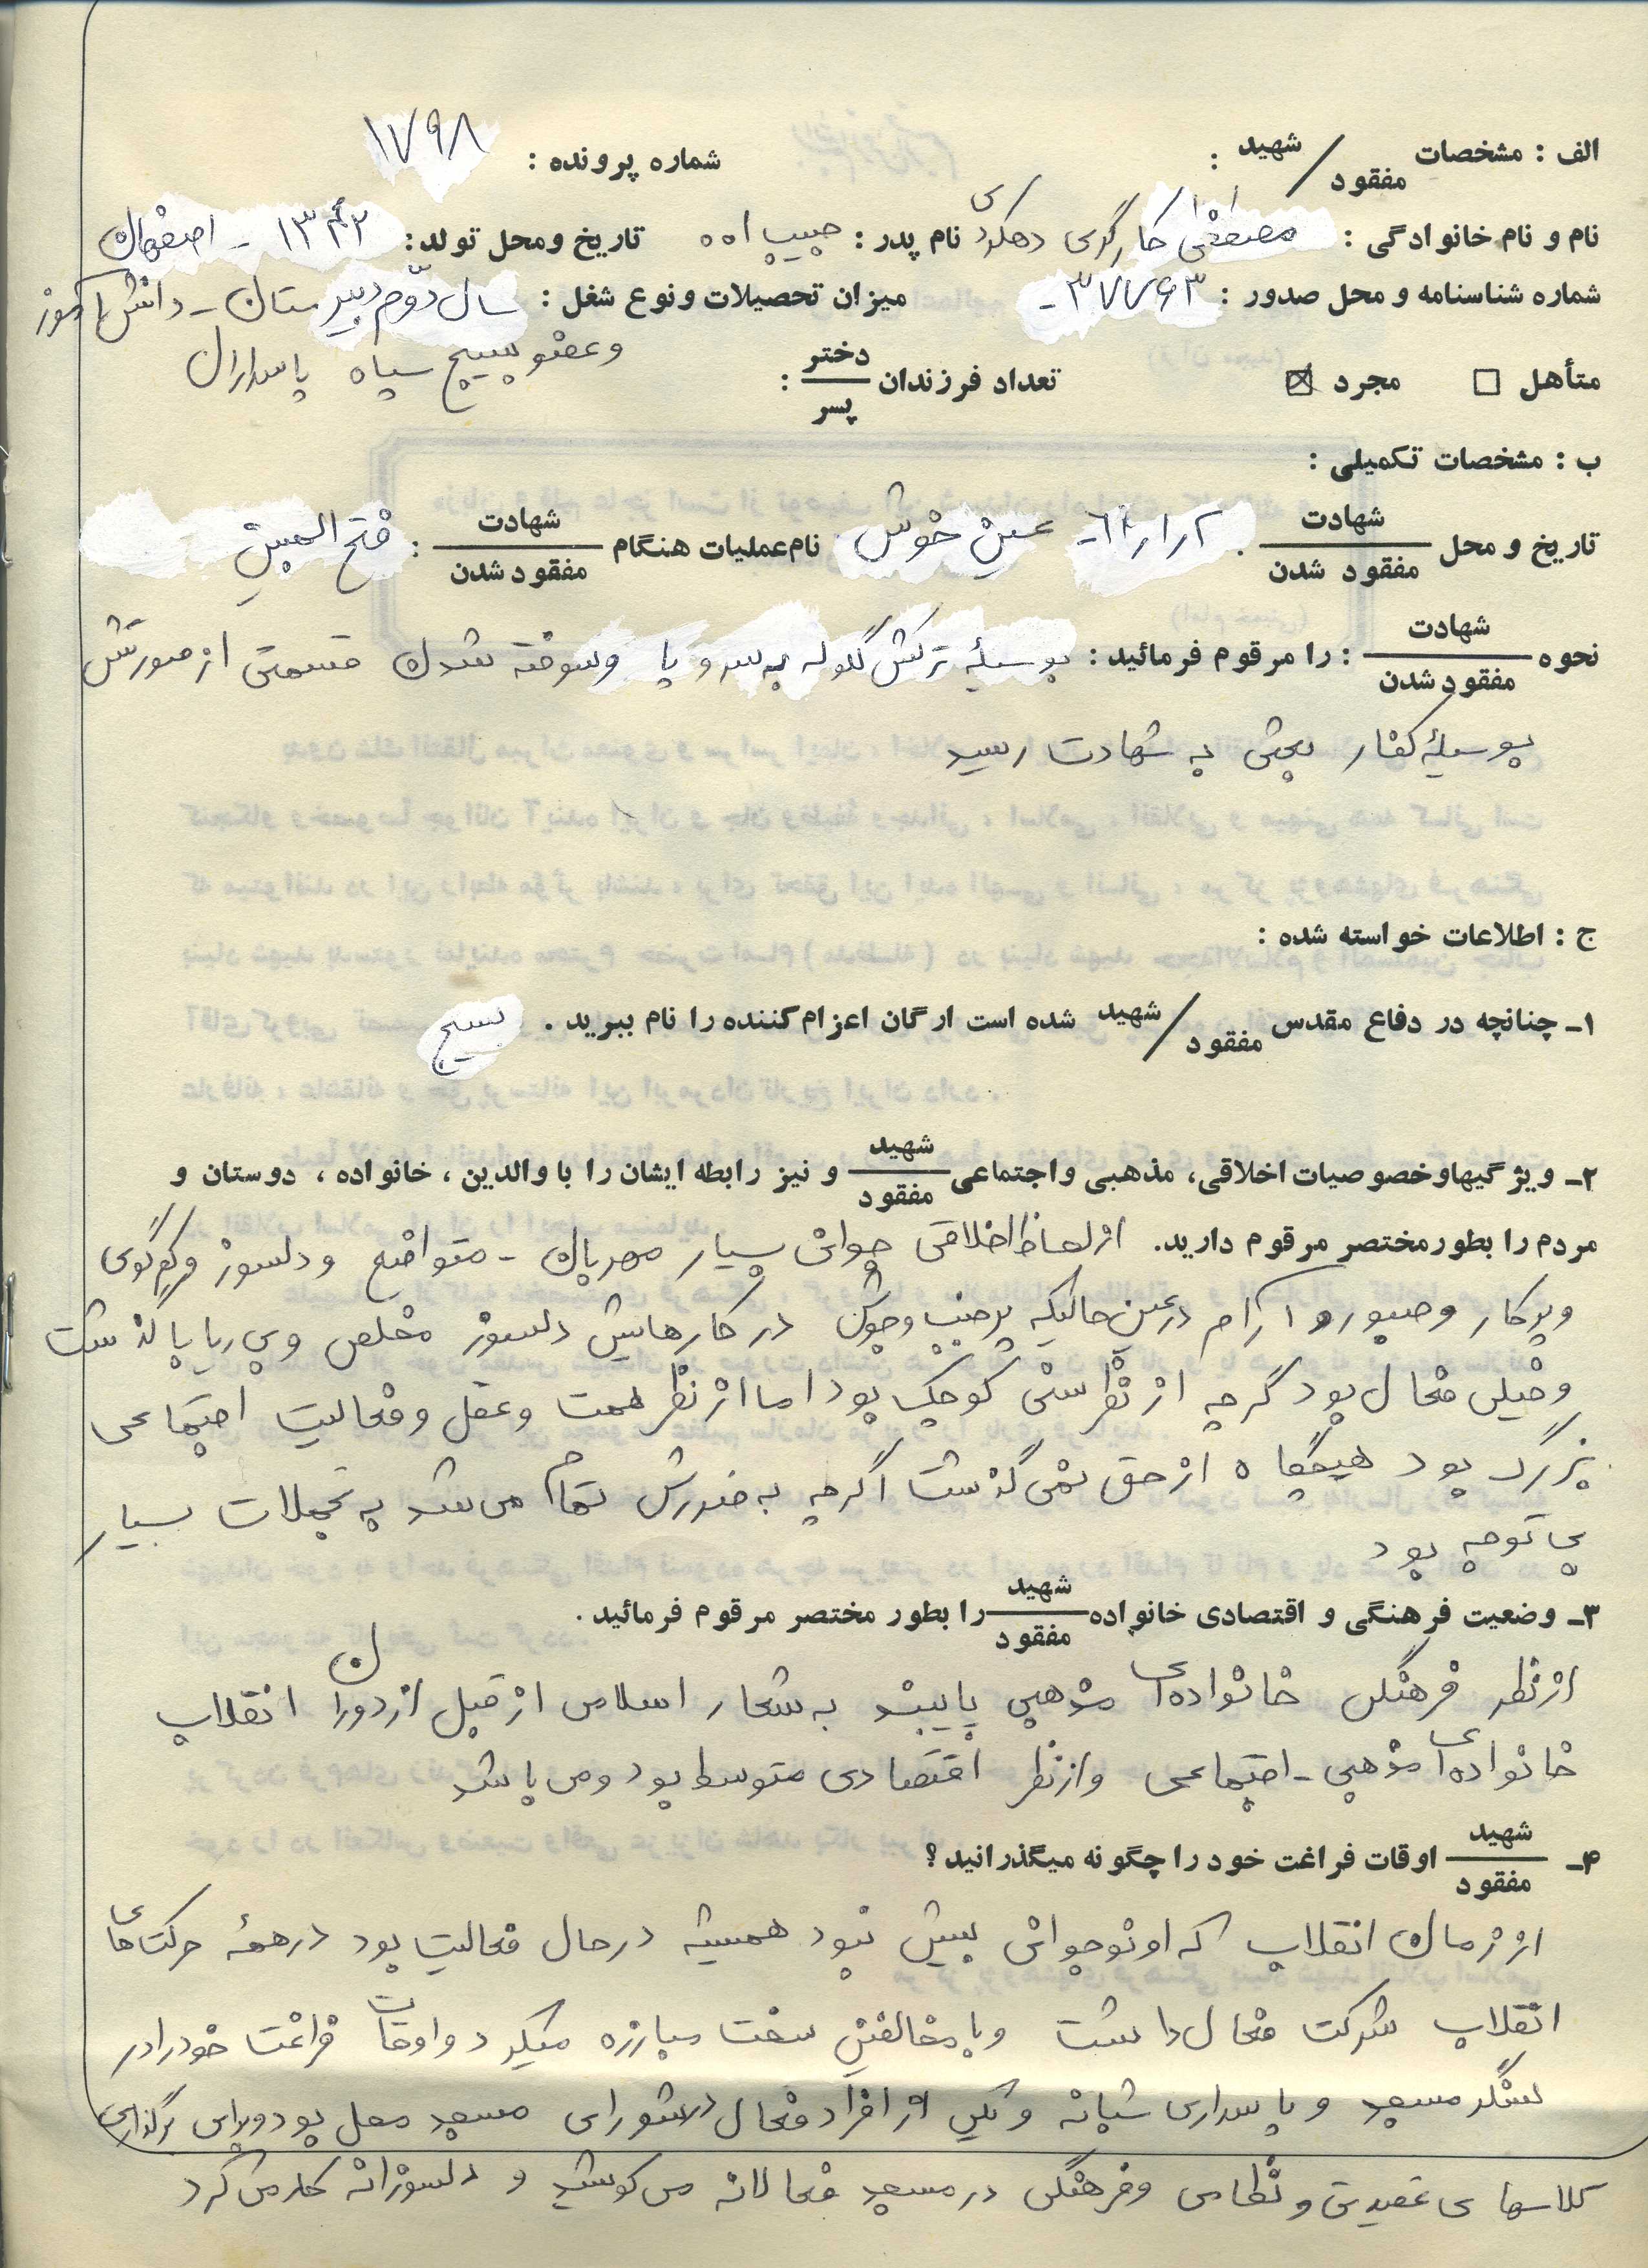 الف : مشخصات شهید / مفقود : شماره پرونده : ۱۷۹۸
نام و نام خانوادگی : مصطفی کارگری دهکردی نام پدر : حبیب اله تاریخ ومحل تولد : ۱۳۴۲ - اصفهان
شماره شناسنامه و محل صدور : ۳۷۷۶۳ - میزان تحصیلات و نوع شغل : سال دوّم دبیرستان - دانش آموز
و عضو بسیج سپاه پاسداران
متأهل □ مجرد ☒ تعداد فرزندان دختر / پسر :
ب : مشخصات تکمیلی :
تاریخ و محل شهادت / مفقود شدن : ۶۱/۱/۲ - عین خوش نام عملیات هنگام شهادت / مفقود شدن : فتح المبین
نحوه شهادت / مفقود شدن : را مرقوم فرمائید : بوسیلهٔ ترکش گلوله به سر و پا و سوخته شدن قسمتی از صورتش
بوسیلهٔ کفار بعثی به شهادت رسید
ج : اطلاعات خواسته شده :
۱- چنانچه در دفاع مقدس شهید / مفقود شده است ارگان اعزام کننده را نام ببرید . بسیج
۲- ویژگیهاوخصوصیات اخلاقی، مذهبی واجتماعی شهید / مفقود و نیز رابطه ایشان را با والدین ، خانواده ، دوستان و
مردم را بطور مختصر مرقوم دارید. از لحاظ اخلاقی جوانی بسیار مهربان - متواضع و دلسوز و کم گوی
و پرکار و صبور و آرام در عین حالیکه پر جنب و جوش در کارهایش دلسوز مخلص و بی ریا با گذشت
و خیلی فعال بود گرچه از نظر سنی کوچک بود اما از نظر همت و عقل و فعالیت اجتماعی
بزرگ بود هیچگاه از حق نمی گذشت اگرچه به ضررش تمام می شد به تجملات بسیار
بی توجه بود
۳- وضعیت فرهنگی و اقتصادی خانواده شهید / مفقود را بطور مختصر مرقوم فرمائید .
از نظر فرهنگی خانواده ای مذهبی پایبند به شعار اسلامی از قبل از دوران انقلاب
خانواده ای مذهبی - اجتماعی و از نظر اقتصادی متوسط بود و می باشد
۴- شهید / مفقود اوقات فراغت خود را چگونه میگذرانید ؟
از زمان انقلاب که او نوجوانی بیش نبود همیشه در حال فعالیت بود در همهٔ حرکت های
انقلاب شرکت فعال داشت و با مخالفین سخت مبارزه میکرد و اوقات فراغت خود را در
سنگر مسجد و پاسداری شبانه و یکی از افراد فعال در شورای مسجد محل بود و برای برگذاری
کلاسهای عقیدتی و نظامی و فرهنگی در مسجد فعالانه می کوشید و دلسوزانه کار می کرد